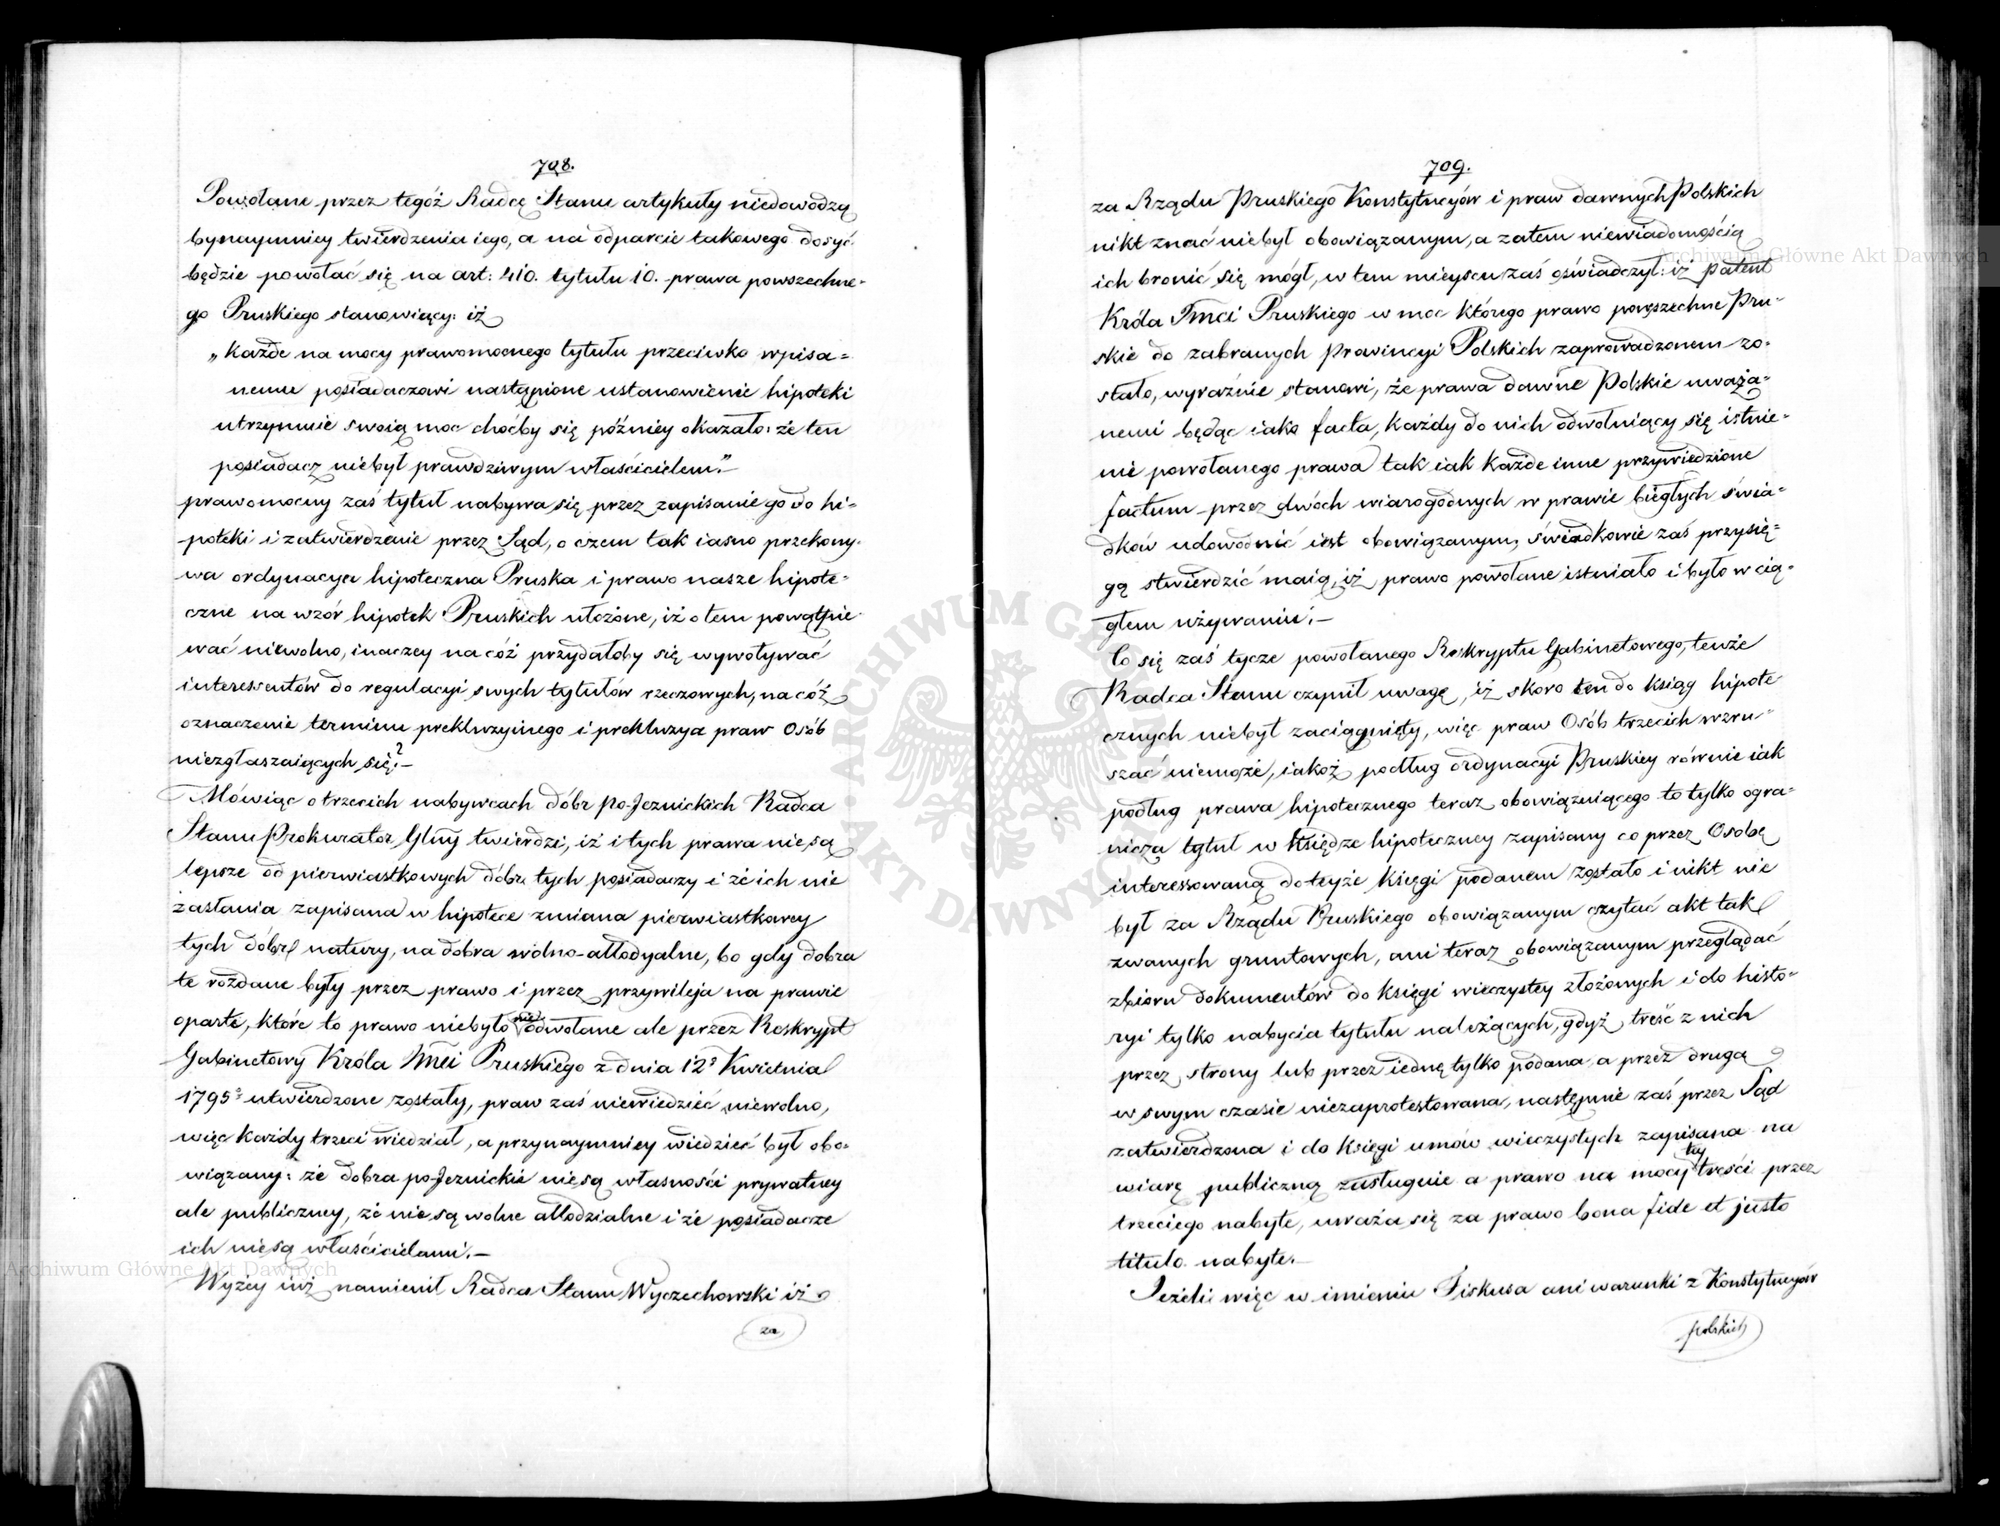 708.
Powołane przez tegóż Radcę Stanu artykuły niedowodzą
bynaymniey twierdzenia iego, a na odparcie takowego dosyć
będzie powołać się na art: 410. tytułu 10. prawa powszechne-
go Pruskiego stanowiący: iż
„Każde na mocy prawomocnego tytułu przeciwko wpisa=
nemu posiadaczowi nastąpione ustanowienie hipoteki
utrzymuie swoią moc choćby się późniey okazało: że ten
posiadacz niebył prawdziwym właścicielem."
prawomocny zaś tytuł nabywa się przez zapisanie go do hi=
poteki i zatwierdzenie przez Sąd, o czem tak iasno przekony-
wa ordynacya hipoteczna Pruska i prawo nasze hipote=
czne na wzór hipotek Pruskich ułożone, iż o tem powątpie-
wać niewolno, inaczey na cóż przydałoby się wywoływać
interessentów do regulacyi swych tytułów rzeczowych, na cóż
oznaczenie terminu prekluzyinego i prekluzya praw Osób
niezgłaszaiących się?–
Mówiąc o trzecich nabywcach dóbr po-Jeznickich Radca
Stanu Prokurator Glny twierdzi, iż i tych prawa nie są
lepsze od pierwiastkowych dóbr tych posiadaczy i że ich nie
zasłania zapisana w hipotece zmiana pierwiastkowey
tych dóbr natury, na dobra wolno-allodyalne, bo gdy dobra
te rozdane były przez prawo i przez przywileja na prawie
oparte, które to prawo niebyło nie odwołane ale przez Reskrypt
Gabinetowy Króla Jmci Pruskiego z dnia 12º Kwietnia
1795º utwierdzone zostały, praw zaś niewiedzieć niewolno,
więc każdy trzeci wiedział, a przynaymniey wiedzieć był obo=
wiązany: że dobra po-Jeznickie nie są własności prywatney
ale publiczney, że nie są wolne allodzialne i że posiadacze
ich nie są właścicielami.–
Wyżey iuż namienił Radca Stanu Wyczechowski iż
za
709.
za Rządu Pruskiego Konstytucyów i praw dawnych Polskich
nikt znać niebył obowiązanym, a zatem niewiadomością
ich bronić się mógł, w tem mieyscu zaś oświadczył: iż patent
Króla Jmci Pruskiego w moc którego prawo powszechne Pru-
skie do zabranych Prowincyi Polskich zaprowadzonem zo-
stało, wyraźnie stanowi, że prawa dawne Polskie uważa=
nemi będąc iako facta, każdy do nich odwołuiący się istnie=
nie powołanego prawa tak iak każde inne przywiedzione
factum przez dwóch wiarogodnych w prawie biegłych świa=
dków udowodnić iest obowiązanym, świadkowie zaś przysię=
gą stwierdzić maią, iż prawo powołane istniało i było w cią-
głem używaniu.–
Co się zaś tycze powołanego Reskryptu Gabinetowego, tenże
Radca Stanu czynił uwagę, iż skoro ten do ksiąg hipote
cznych niebył zaciągnięty, więc praw Osób trzecich wzru=
szać niemoże, iakoż podług ordynacyi Pruskiey równie iak
podług prawa hipotecznego teraz obowiązuiącego to tylko ogra=
nicza tytuł w księdze hipoteczney zapisany co przez Osobę
interessowaną do teyże księgi podanem zostało i nikt nie
był za Rządu Pruskiego obowiązanym czytać akt tak
zwanych gruntowych, ani teraz obowiązanym przeglądać
zbioru dokumentów do księgi wieczystey złożonych i do histo=
ryi tylko nabycia tytułu należących, gdyż treść z nich
przez strony lub przez iednę tylko podana, a przez drugą
w swym czasie niezaprotestowana, następnie zaś przez Sąd
zatwierdzona i do księgi umów wieczystych zapisana na
wiarę publiczną zasługuie a prawo na mocy tey treści przez
trzeciego nabyte, uważa się za prawo bona fide et justo
titulo nabyte.–
Jeżeli więc w imieniu Fiskusa ani warunki z Konstytucyów
polskich
Archiwum Główne Akt Dawnych
Archiwum Główne Akt Dawnych
ARCHIWUM GŁÓWNE AKT DAWNYCH